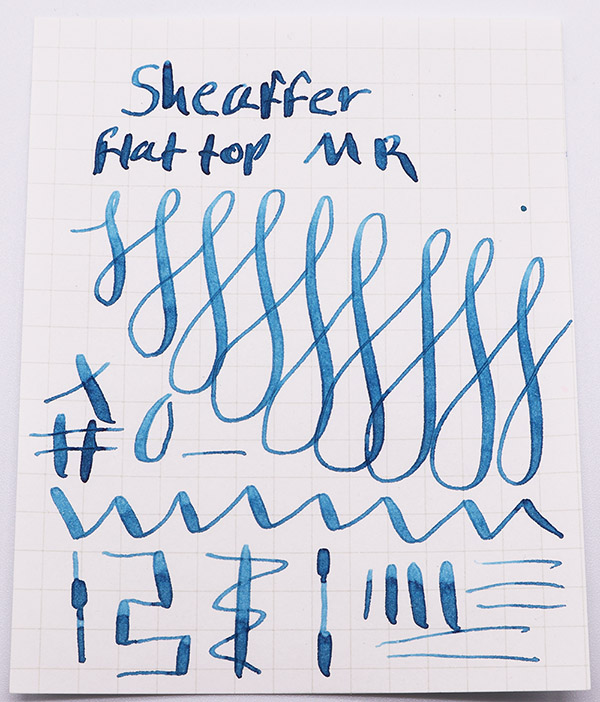 Sheaffer
flat top MR